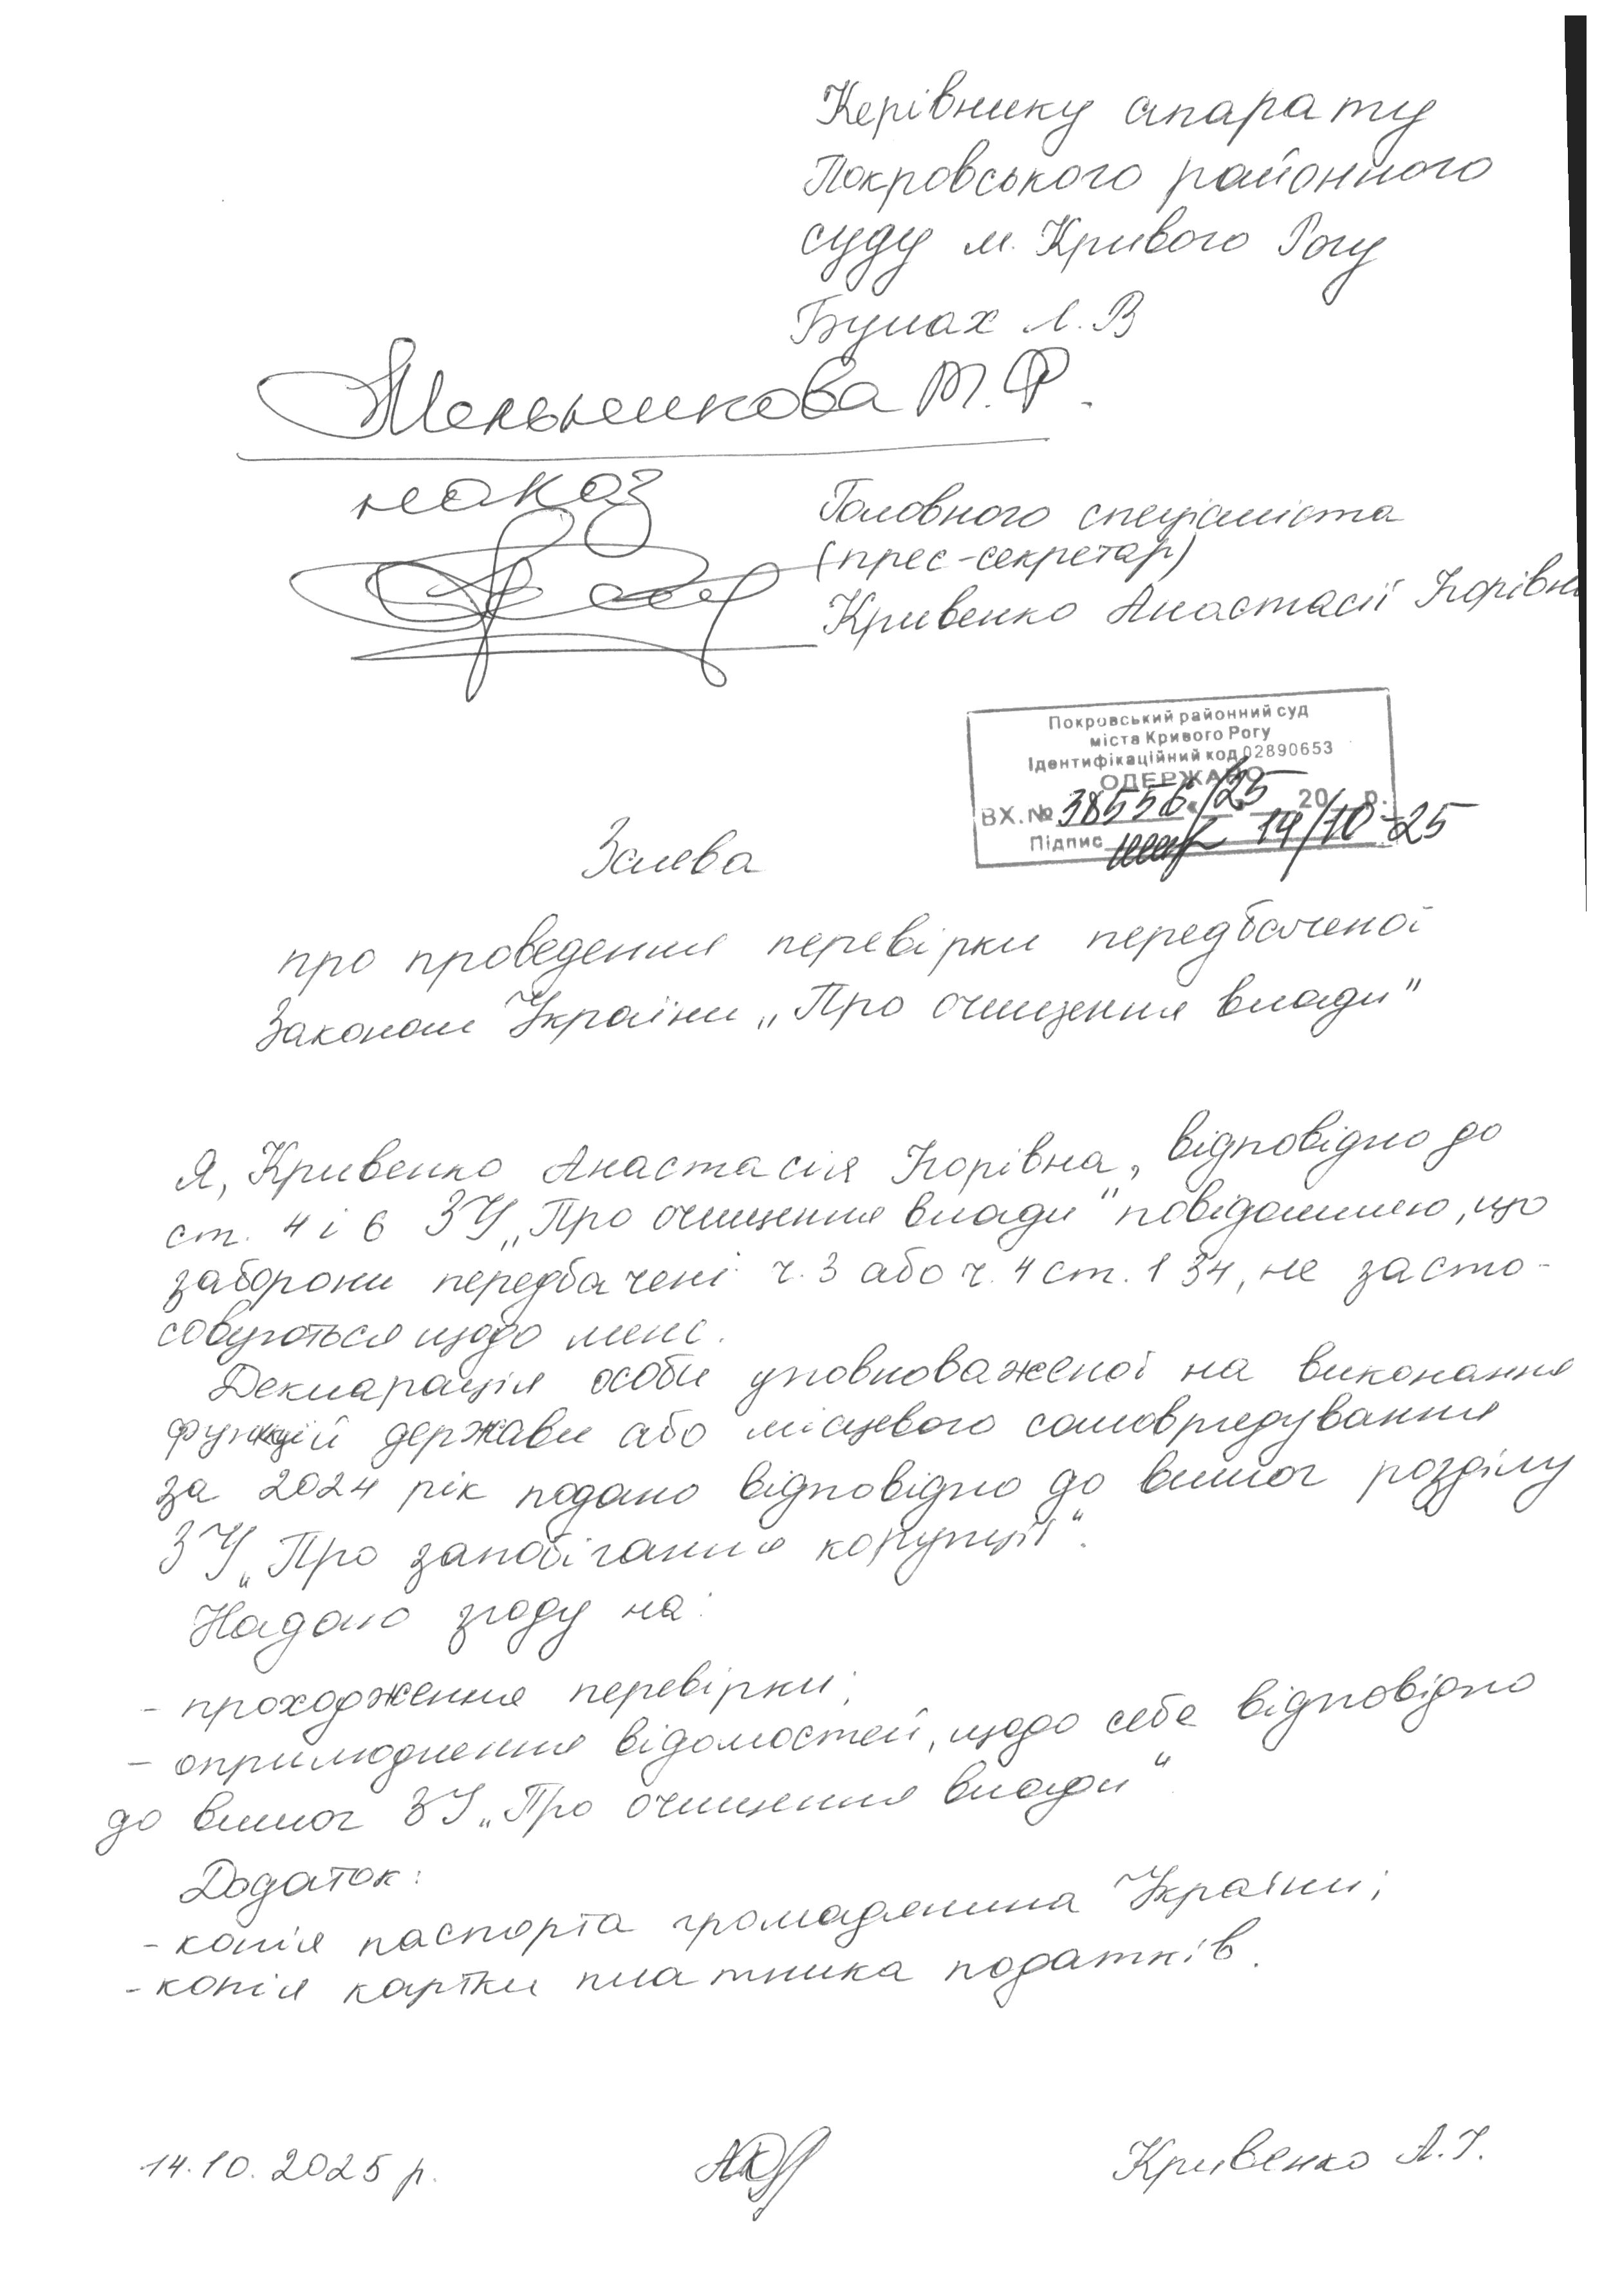 Керівнику апарату
Покровського районного
суду м. Кривого Рогу
Булах Л. В
Мельникова Т. Ф.
наказ
Головного спеціаліста
(прес-секретар)
Кривенко Анастасії Ігорівн
Покровський районний суд
міста Кривого Рогу
Ідентифікаційний код 02890653
ОДЕРЖАНО
ВХ. № 38556/25 20 р.
Підпис 14/10-25
Заява
про проведення перевірки передбаченої
Законом України „Про очищення влади"
Я, Кривенко Анастасія Ігорівна, відповідно до
ст. 4 і 6 ЗУ „Про очищення влади" повідомляю, що
заборони передбачені ч. 3 або ч. 4 ст. 1 ЗУ, не засто-
совуються щодо мене.
Декларація особи уповноваженої на виконання
функцій держави або місцевого самоврядування
за 2024 рік подано відповідно до вимог розділу
ЗУ „Про запобігання корупції".
Надаю згоду на:
- проходження перевірки;
- оприлюднення відомостей, щодо себе відповідно
до вимог ЗУ „Про очищення влади"
Додаток:
- копія паспорта громадянина України;
- копія картки платника податків.
14.10.2025 р.
Кривенко А. І.